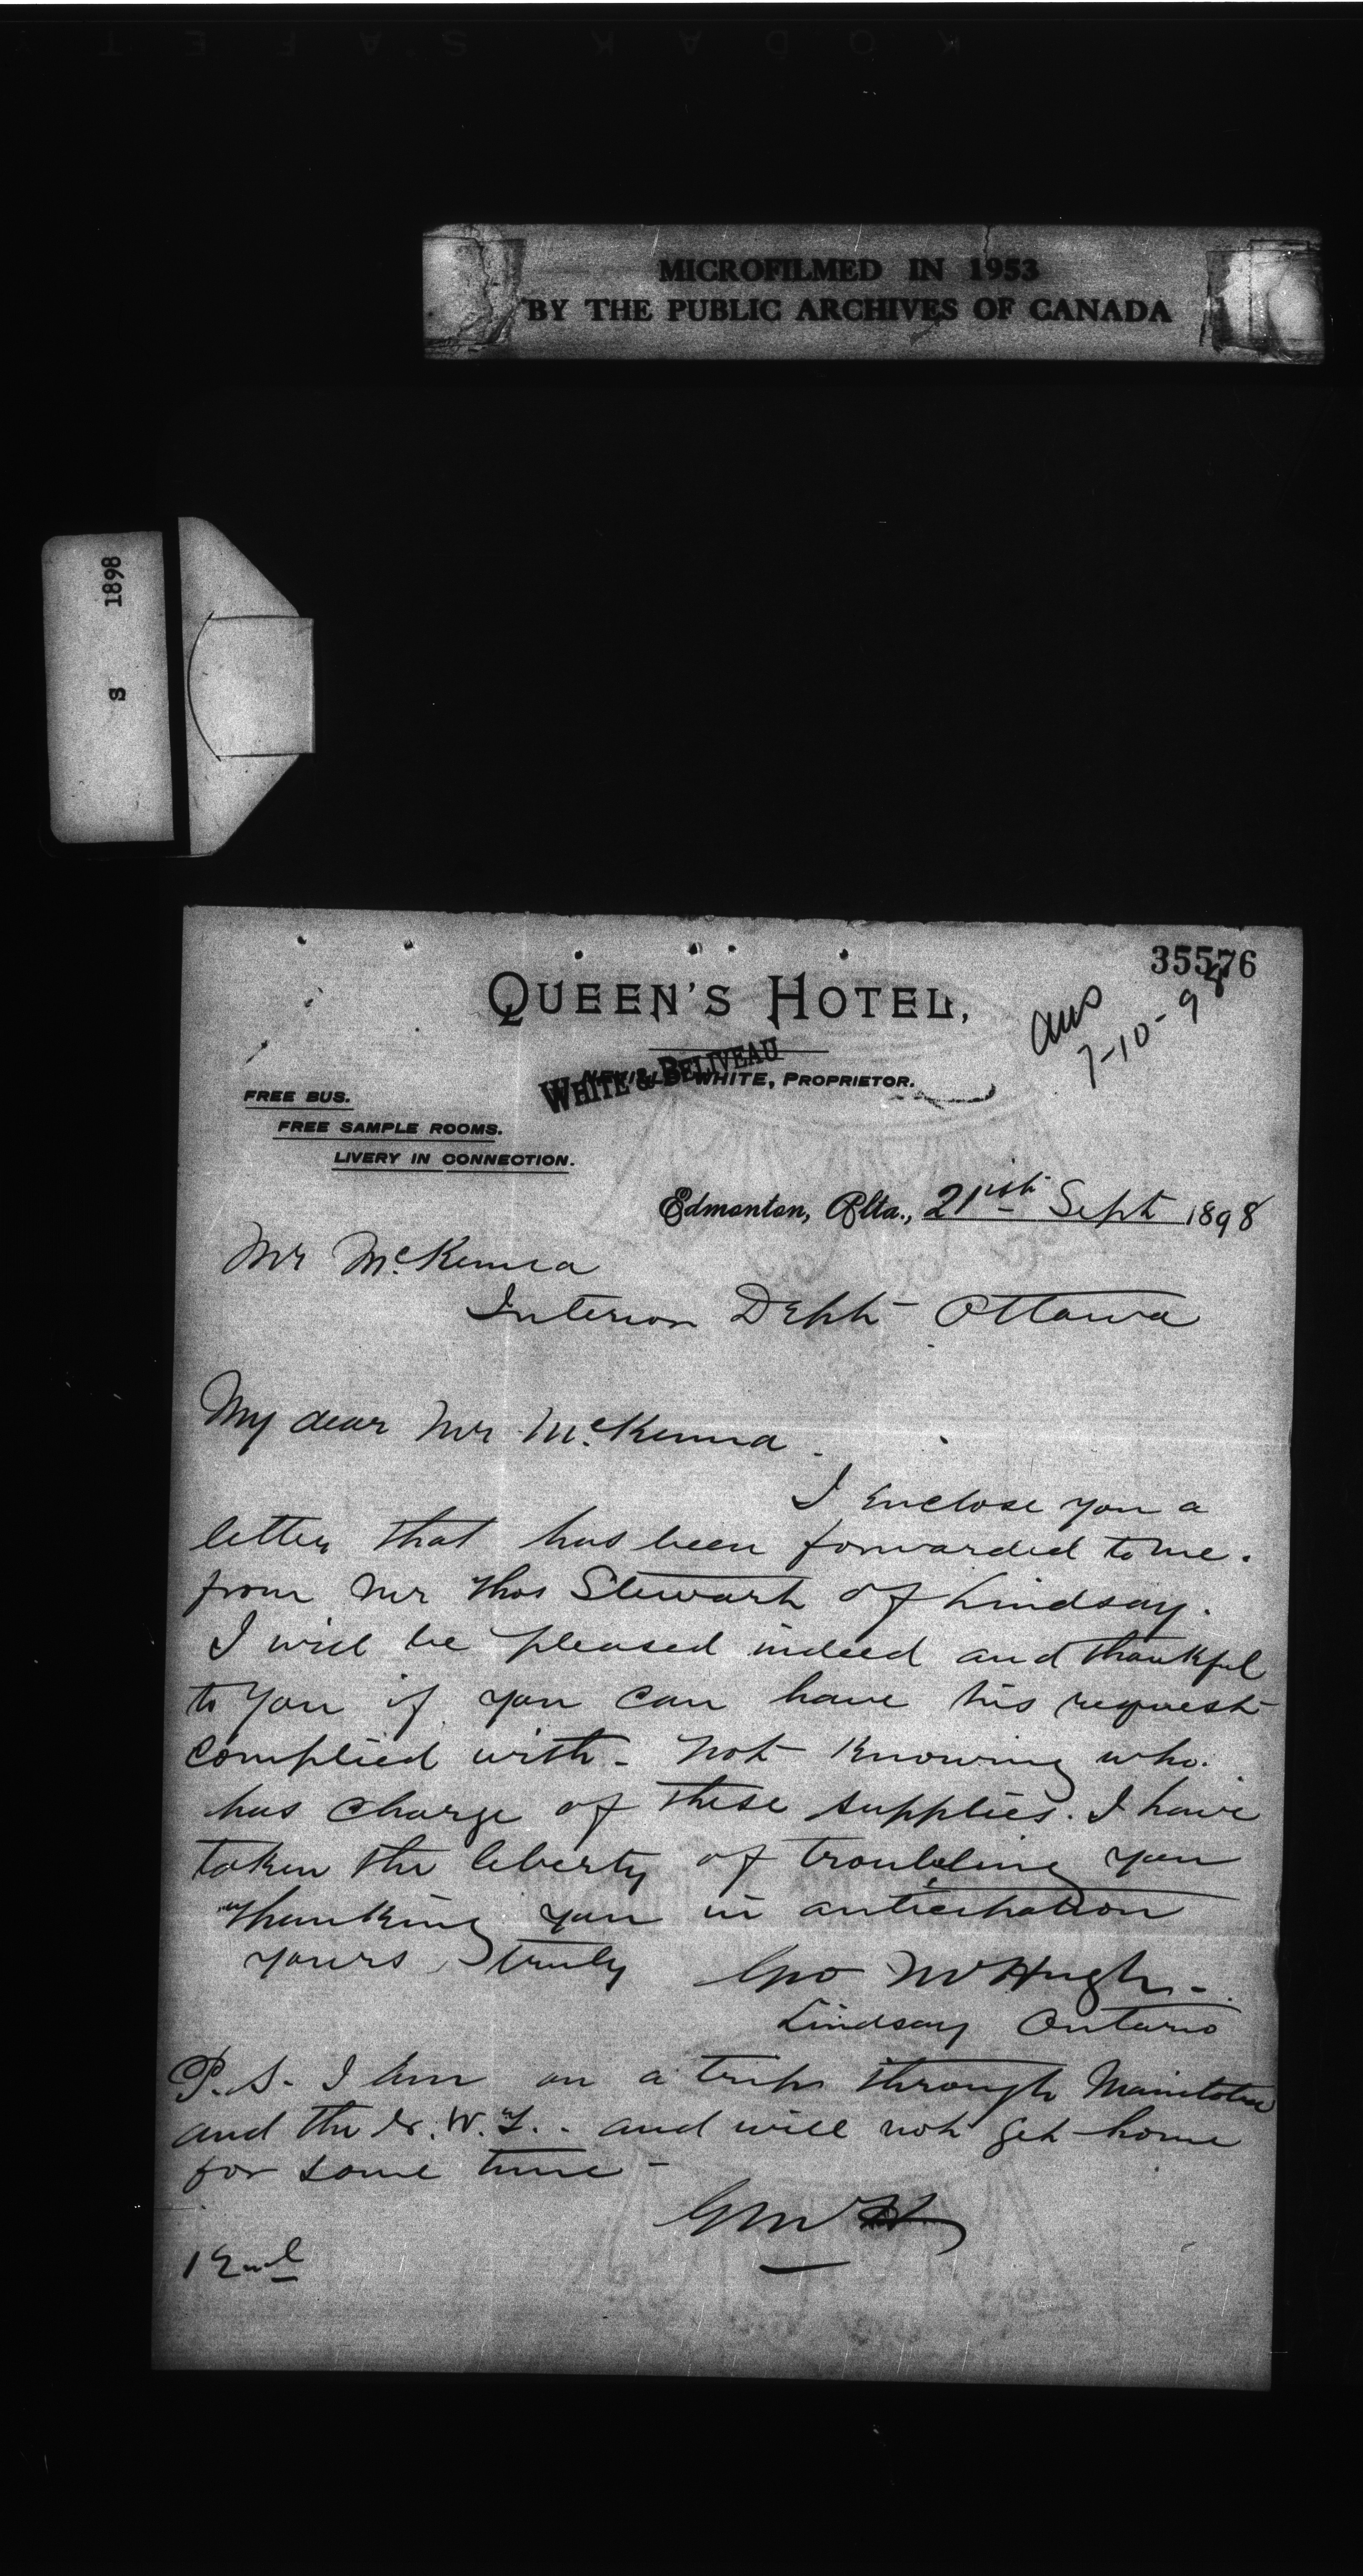 KODAK SAFET
MICROFILMED IN 1953
BY THE PUBLIC ARCHIVES OF CANADA
S 1898
35576
QUEEN'S HOTEL,
ans
7-10-98
WHITE & BELIVEAU
WHITE, PROPRIETOR.
FREE BUS.
FREE SAMPLE ROOMS.
LIVERY IN CONNECTION.
Edmonton, Alta., 21ist Sept 1898
Mr McKenna
Interior Dept Ottawa
My dear Mr McKenna.
I Enclose you a
letter that has been forwarded to me.
from Mr Thos Stewart of Lindsay.
I will be pleased indeed and thankful
to you if you can have his request
Complied with - not knowing who.
has charge of these supplies. I have
taken the liberty of troubling you
Thanking you in anticipation
yours truly Geo McHugh -
Lindsay Ontario
P.S. I Am on a trip through Manitoba
and the N.W.T.. and will not get home
for some time -
GMcH
1 Encl